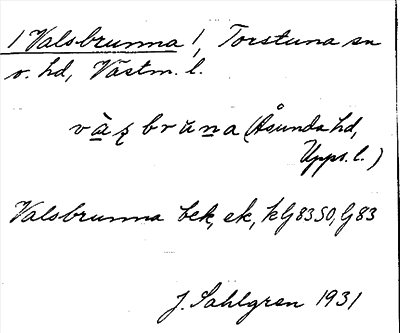 ! Valsbrunna !, Torstuna sn
o. hd, Västm. l.
(Åsunda hd,
Upps. l.)
Valsbrunna bek, ek, kG8350, G83
J. Sahlgren 1931